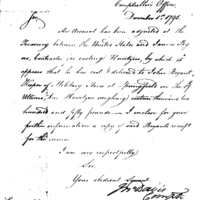 Comptroller's Office,
December 1st 1795.
Sir,
An Account has been adjusted at the
Treasury between the United States and James By-
ers, Contractor in casting Howitzers, by which it
appears that he has cast & delivered to John Bryant,
Keeper of Military Stores at Springfield on the
Ultimo, Howitzers weighing sixteen thousand two
hundred and fifty pounds — I enclose for your
further information a copy of said Bryants receipt
for the same.
I am very respectfully
Sir,
Your obedient Servant
Jno Davis
Comptr.